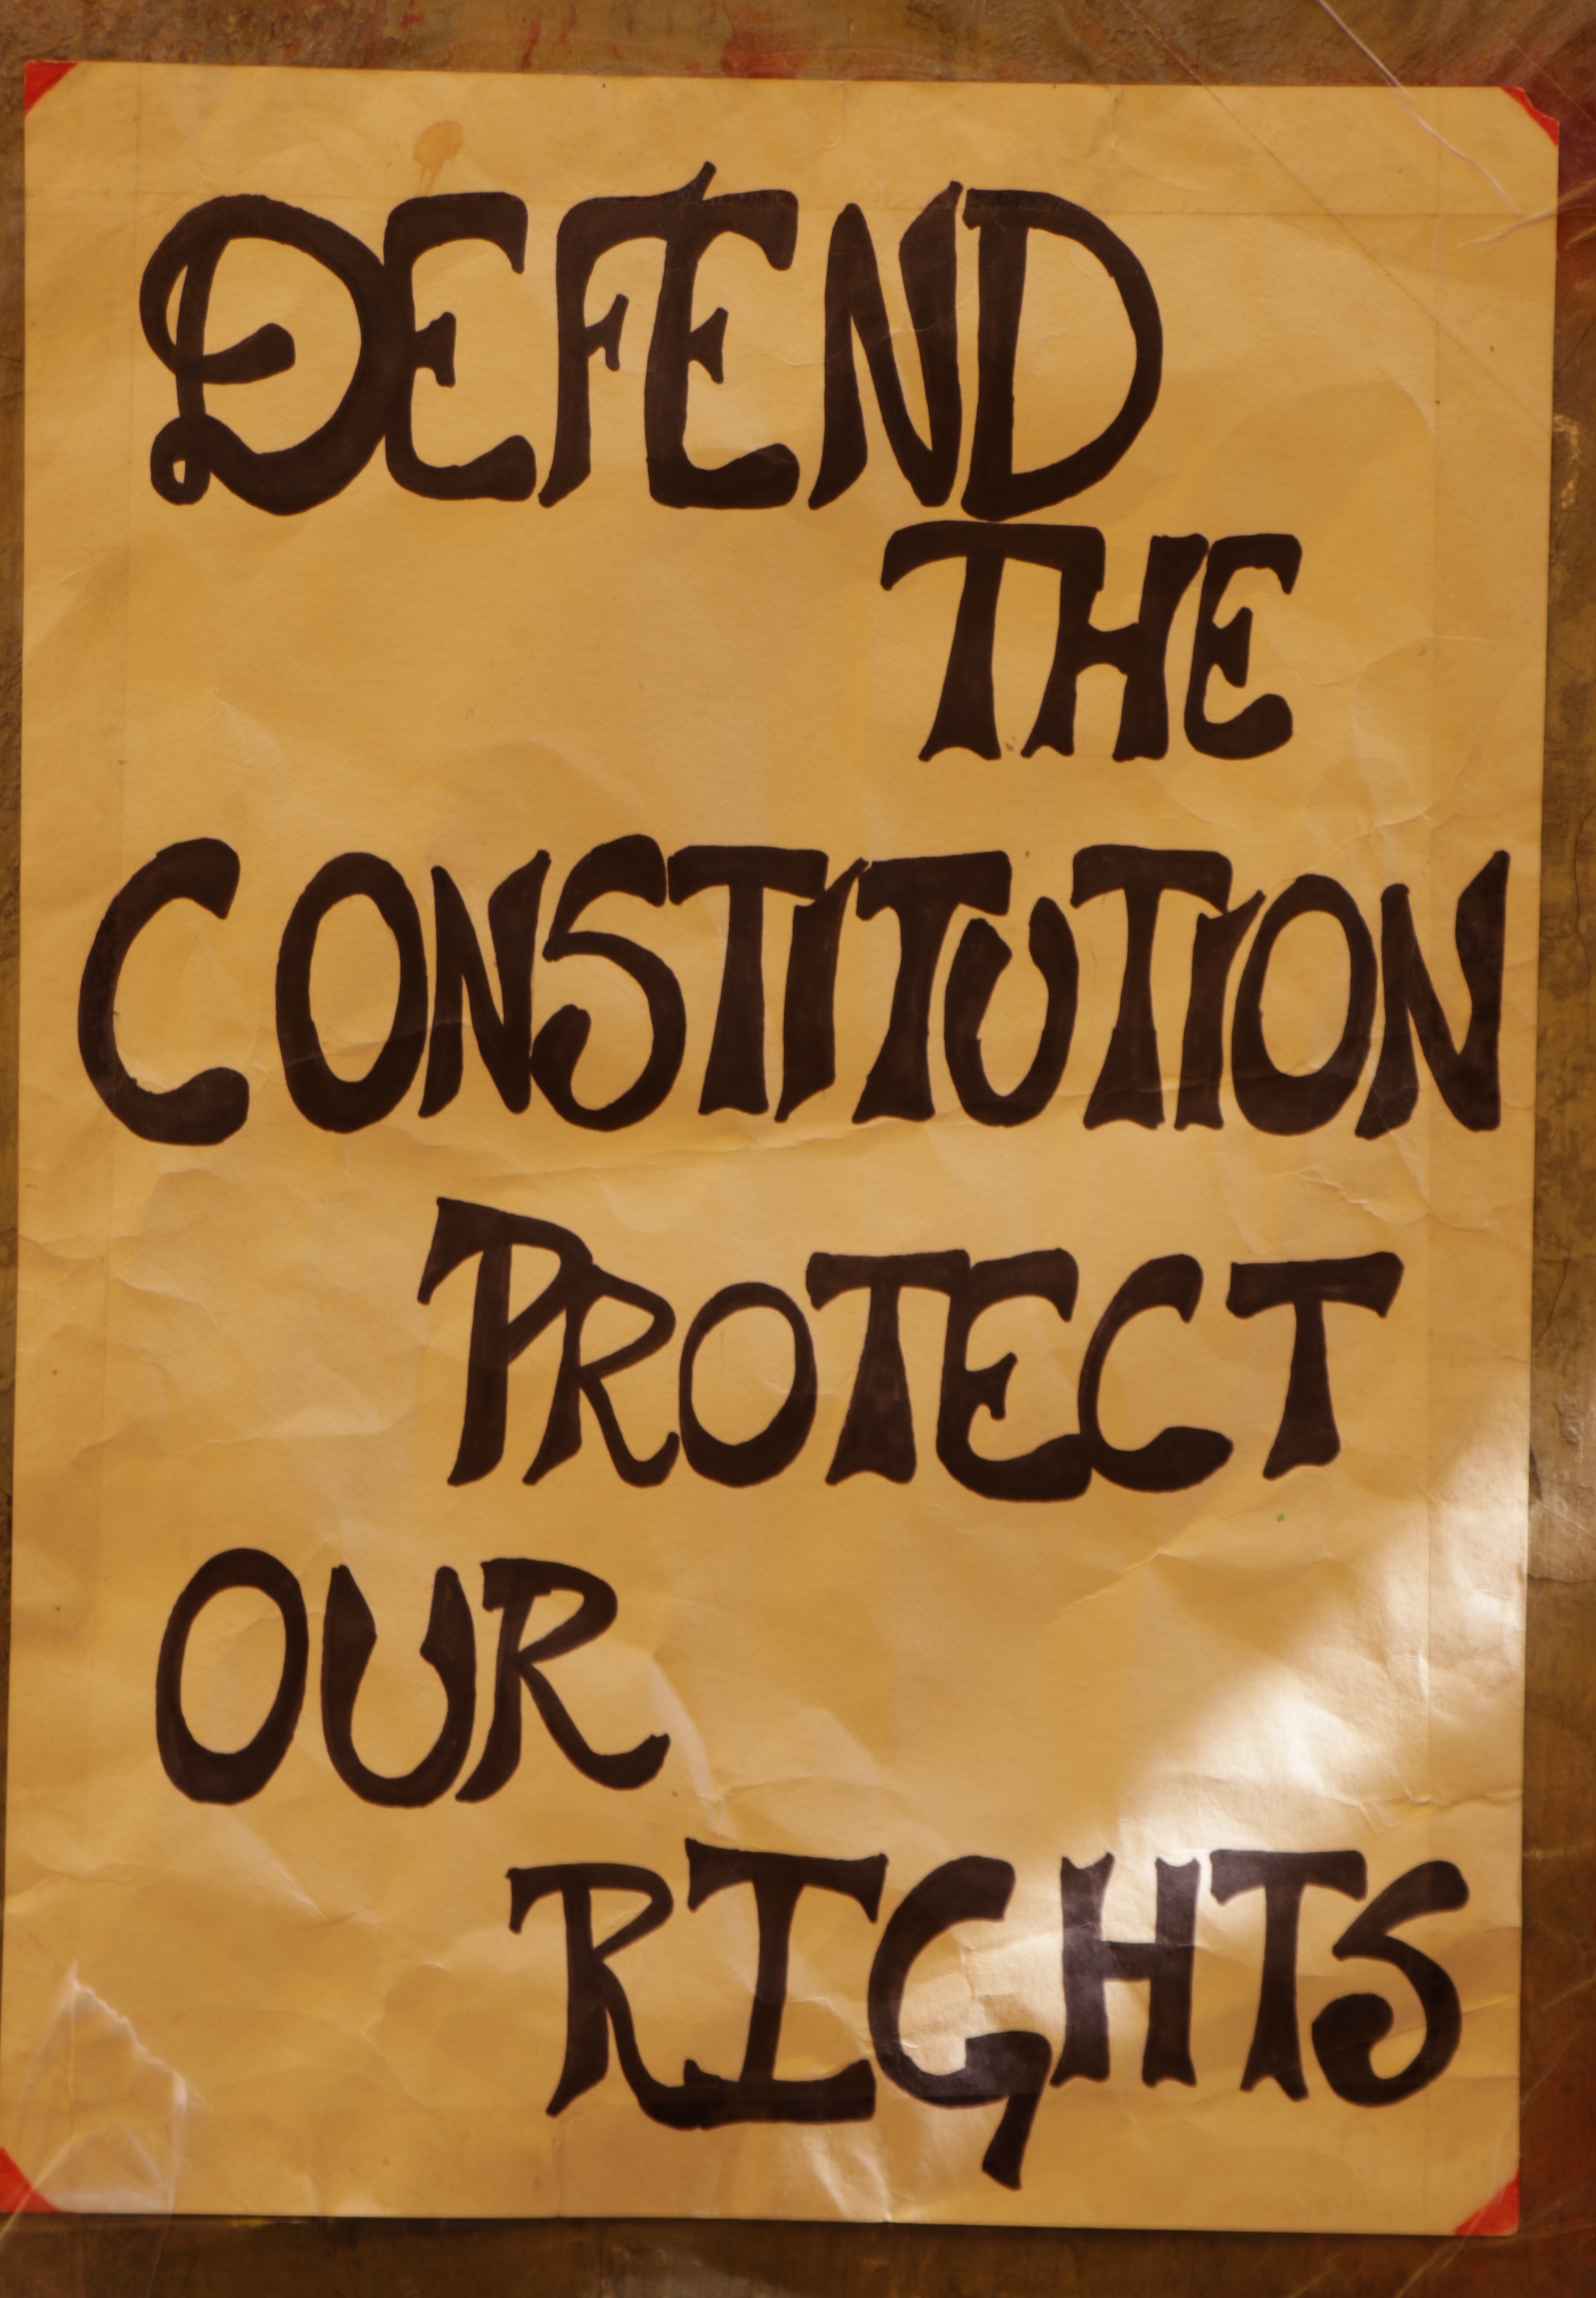 DEFEND
THE
CONSTITUTION
PROTECT
OUR
RIGHTS